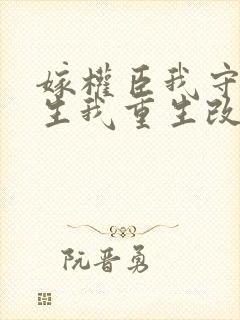 嫁權臣我守
生我重生改
阮晋勇